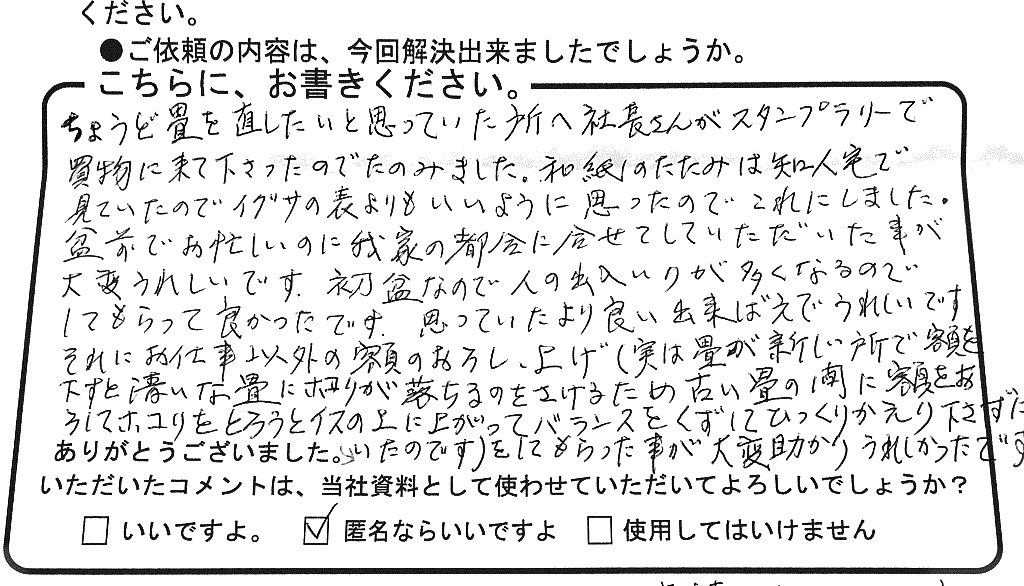 ください。
●ご依頼の内容は、今回解決出来ましたでしょうか。
こちらに、お書きください。
ちょうど畳を直したいと思っていた所へ社長さんがスタンプラリーで
買物に来て下さったのでたのみました。和紙のたたみは知人宅で
見ていたのでイグサの表よりもいいように思ったのでこれにしました。
盆前でお忙しいのに我家の都合に合せてしていただいた事が
大変うれしいです。初盆なので人の出入りが多くなるので
してもらって良かったです。思っていたより良い出来ばえでうれしいです
それにお仕事以外の額のおろし、上げ(実は畳が新しい所で額を
下すと凄いな畳にホコリが落ちるのをさけるため古い畳の間に額をお
ろしてホコリをとろうとイスの上に上がってバランスをくずしてひっくりかえり下さずに
いたのです)をしてもらった事が大変助かりうれしかったです
ありがとうございました。
いただいたコメントは、当社資料として使わせていただいてよろしいでしょうか?
□ いいですよ。 ☑ 匿名ならいいですよ □ 使用してはいけません